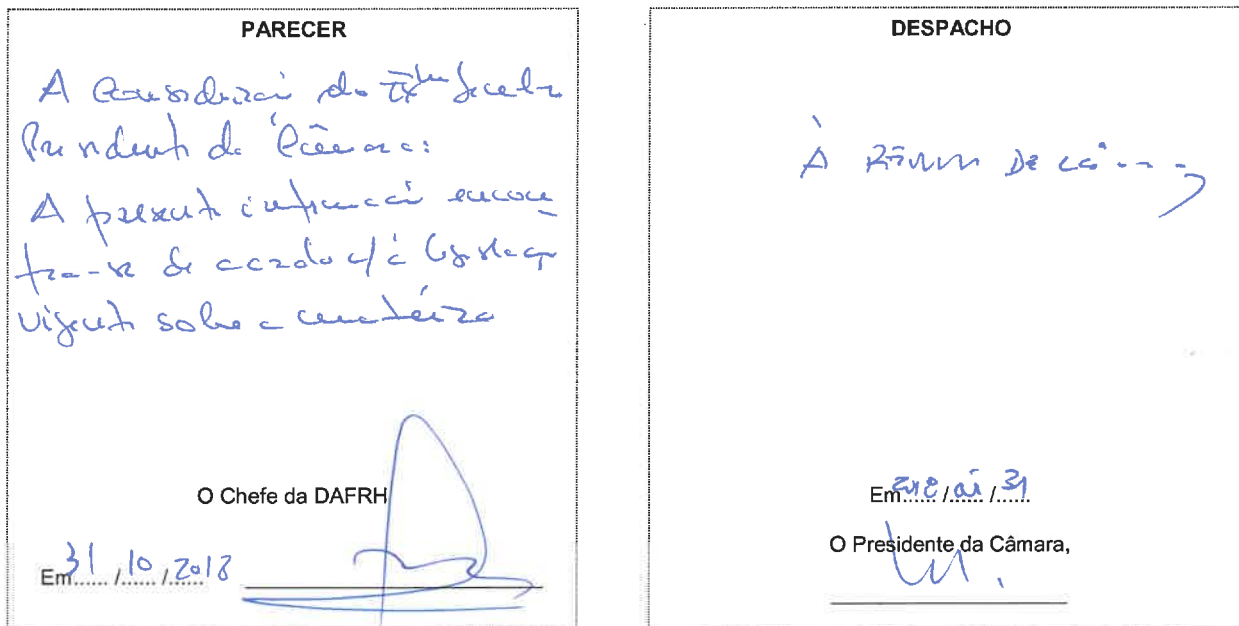 PARECER
A Consideração do Exmo Senhor
Presidente da Câmara:
A presente informação encon
tra-se de acordo c/ a legislação
vigente sobre a matéria
O Chefe da DAFRH
Em 31 / 10 / 2018
DESPACHO
À REUNIÃO DE CÂMARA
Em 2018 / / 31
O Presidente da Câmara,